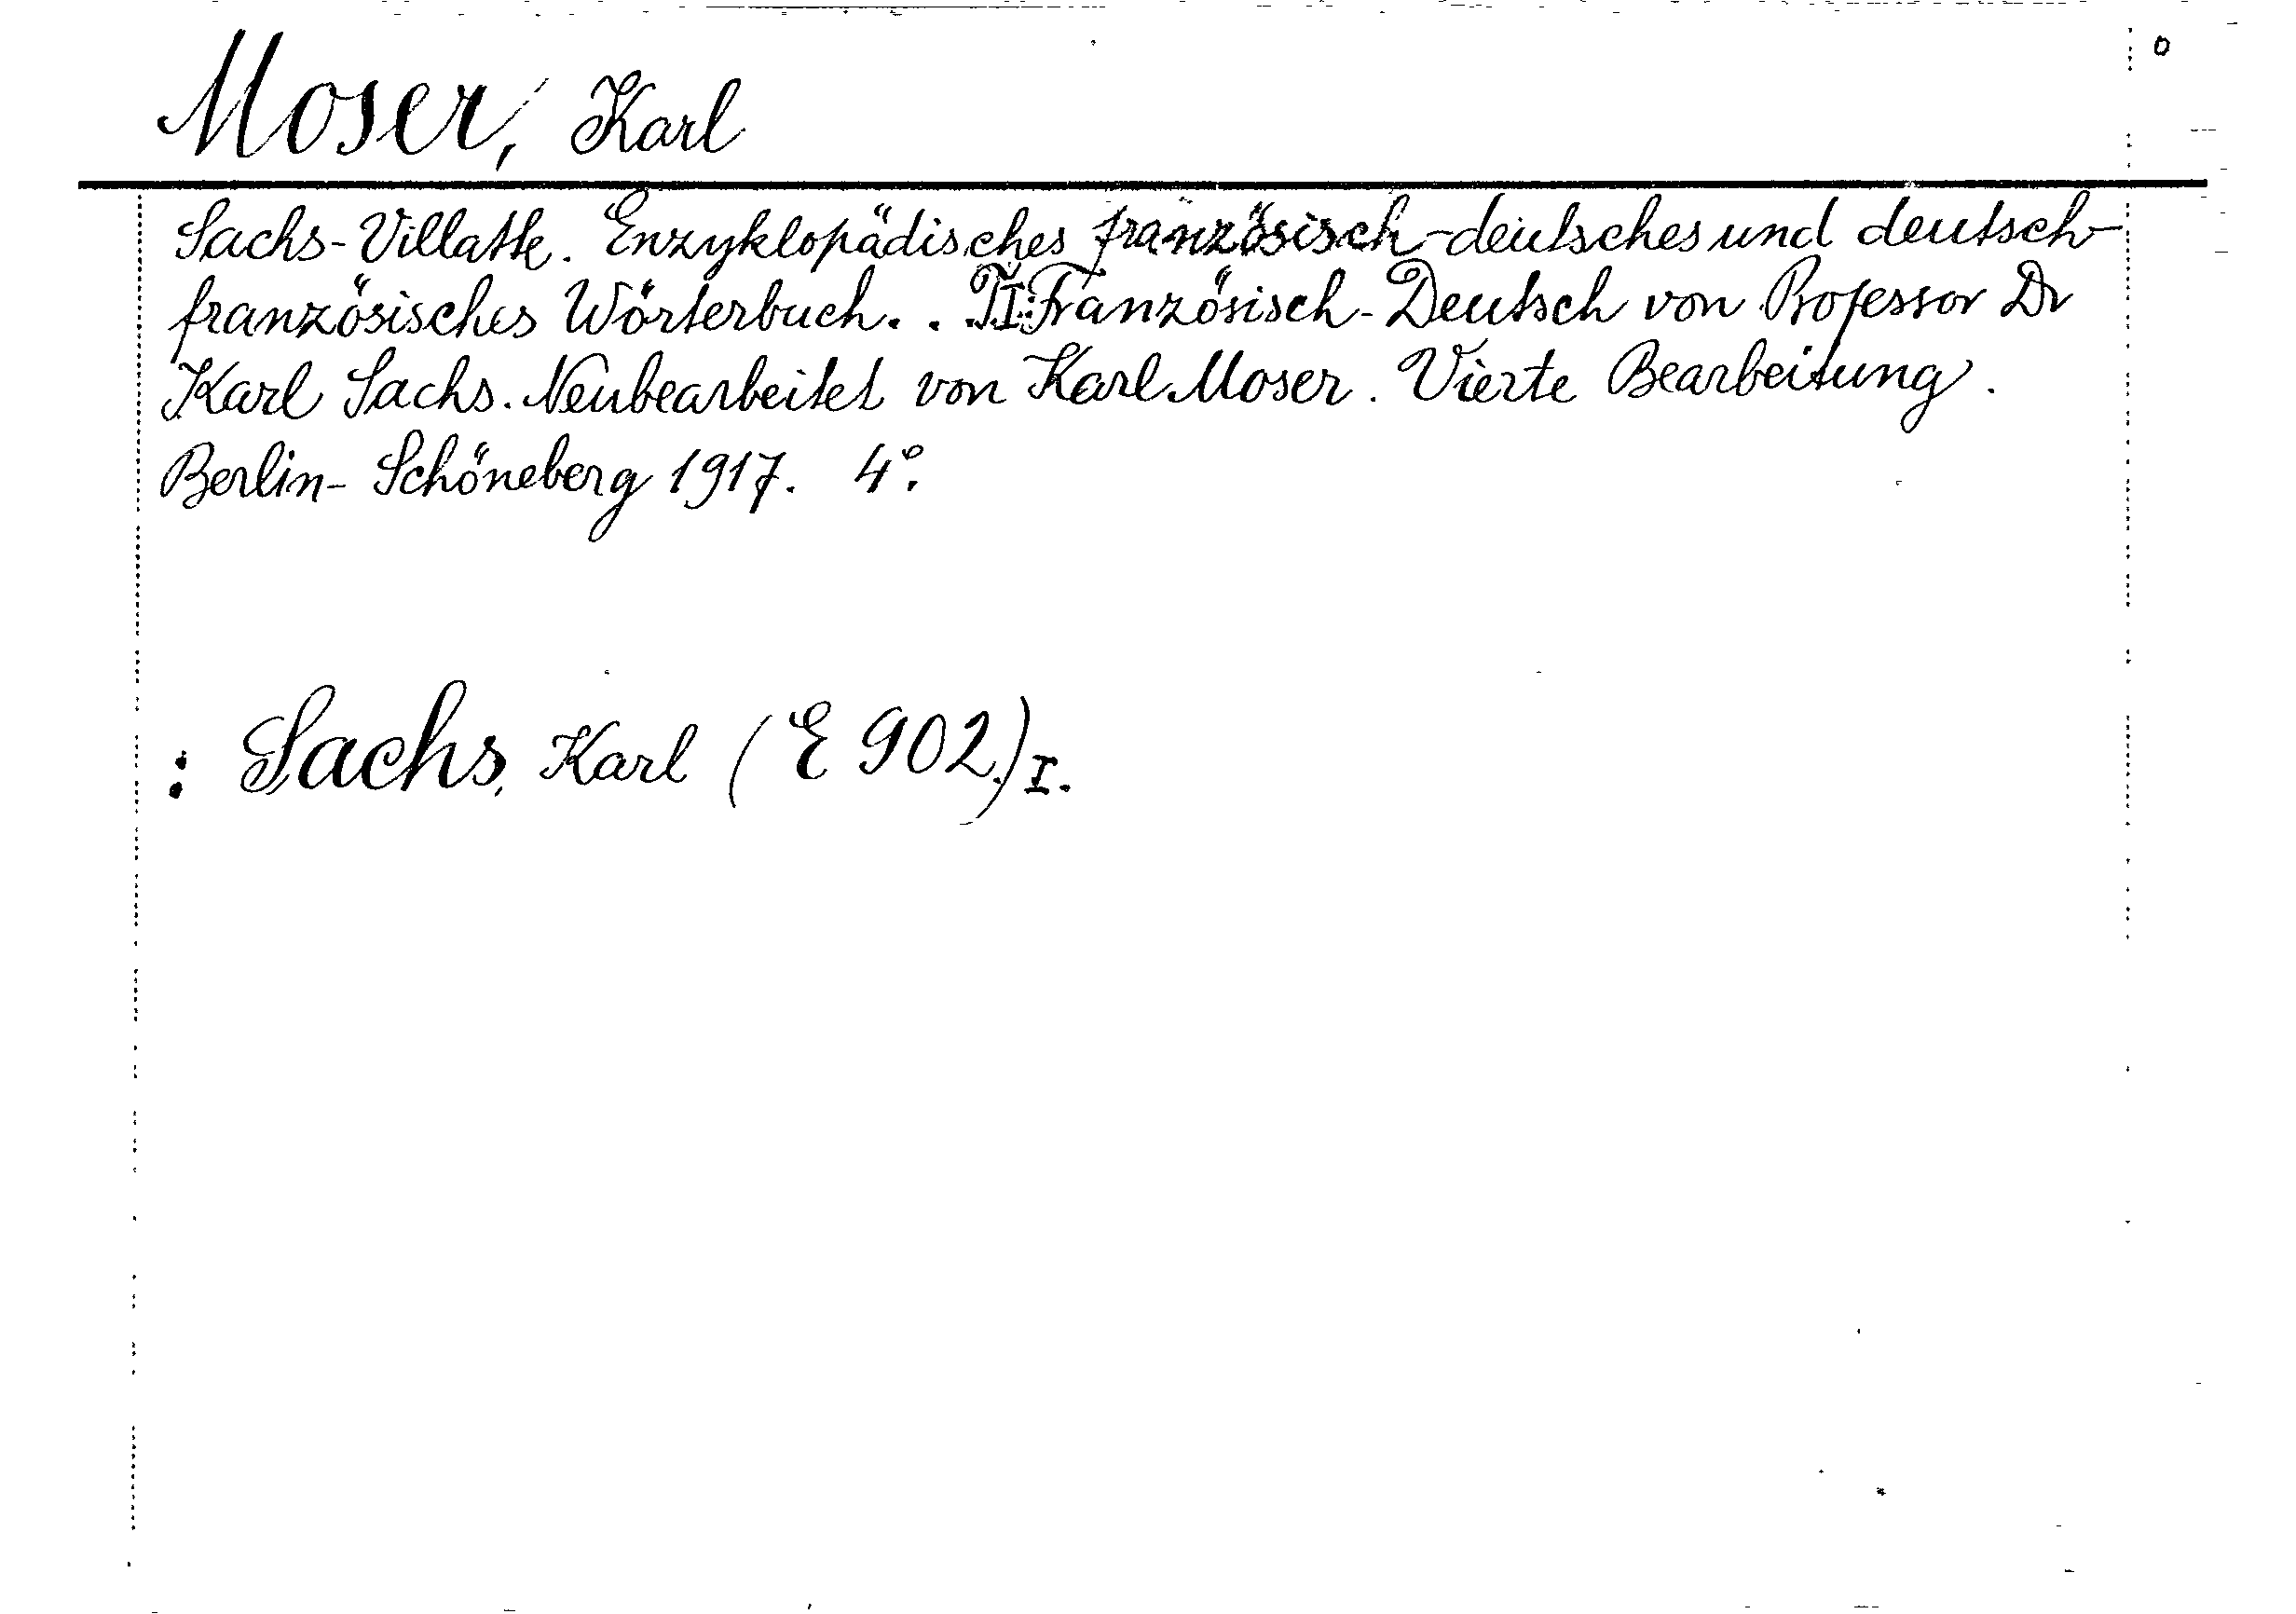 o
Moser, Karl
Sachs-Villatte. Enzyklopädisches französisch-deutsches und deutsch-
französisches Wörterbuch. . TI: Französisch-Deutsch von Professor Dr
Karl Sachs. Neubearbeitet von Karl Moser. Vierte Bearbeitung.
Berlin-Schöneberg 1917. 4°.
: Sachs, Karl (E 902.) I.